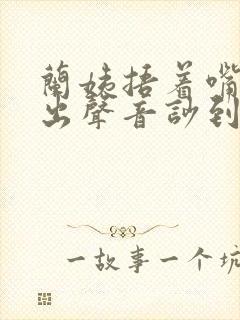 蘭姨捂着嘴
出聲音訬到
一故事一个坑